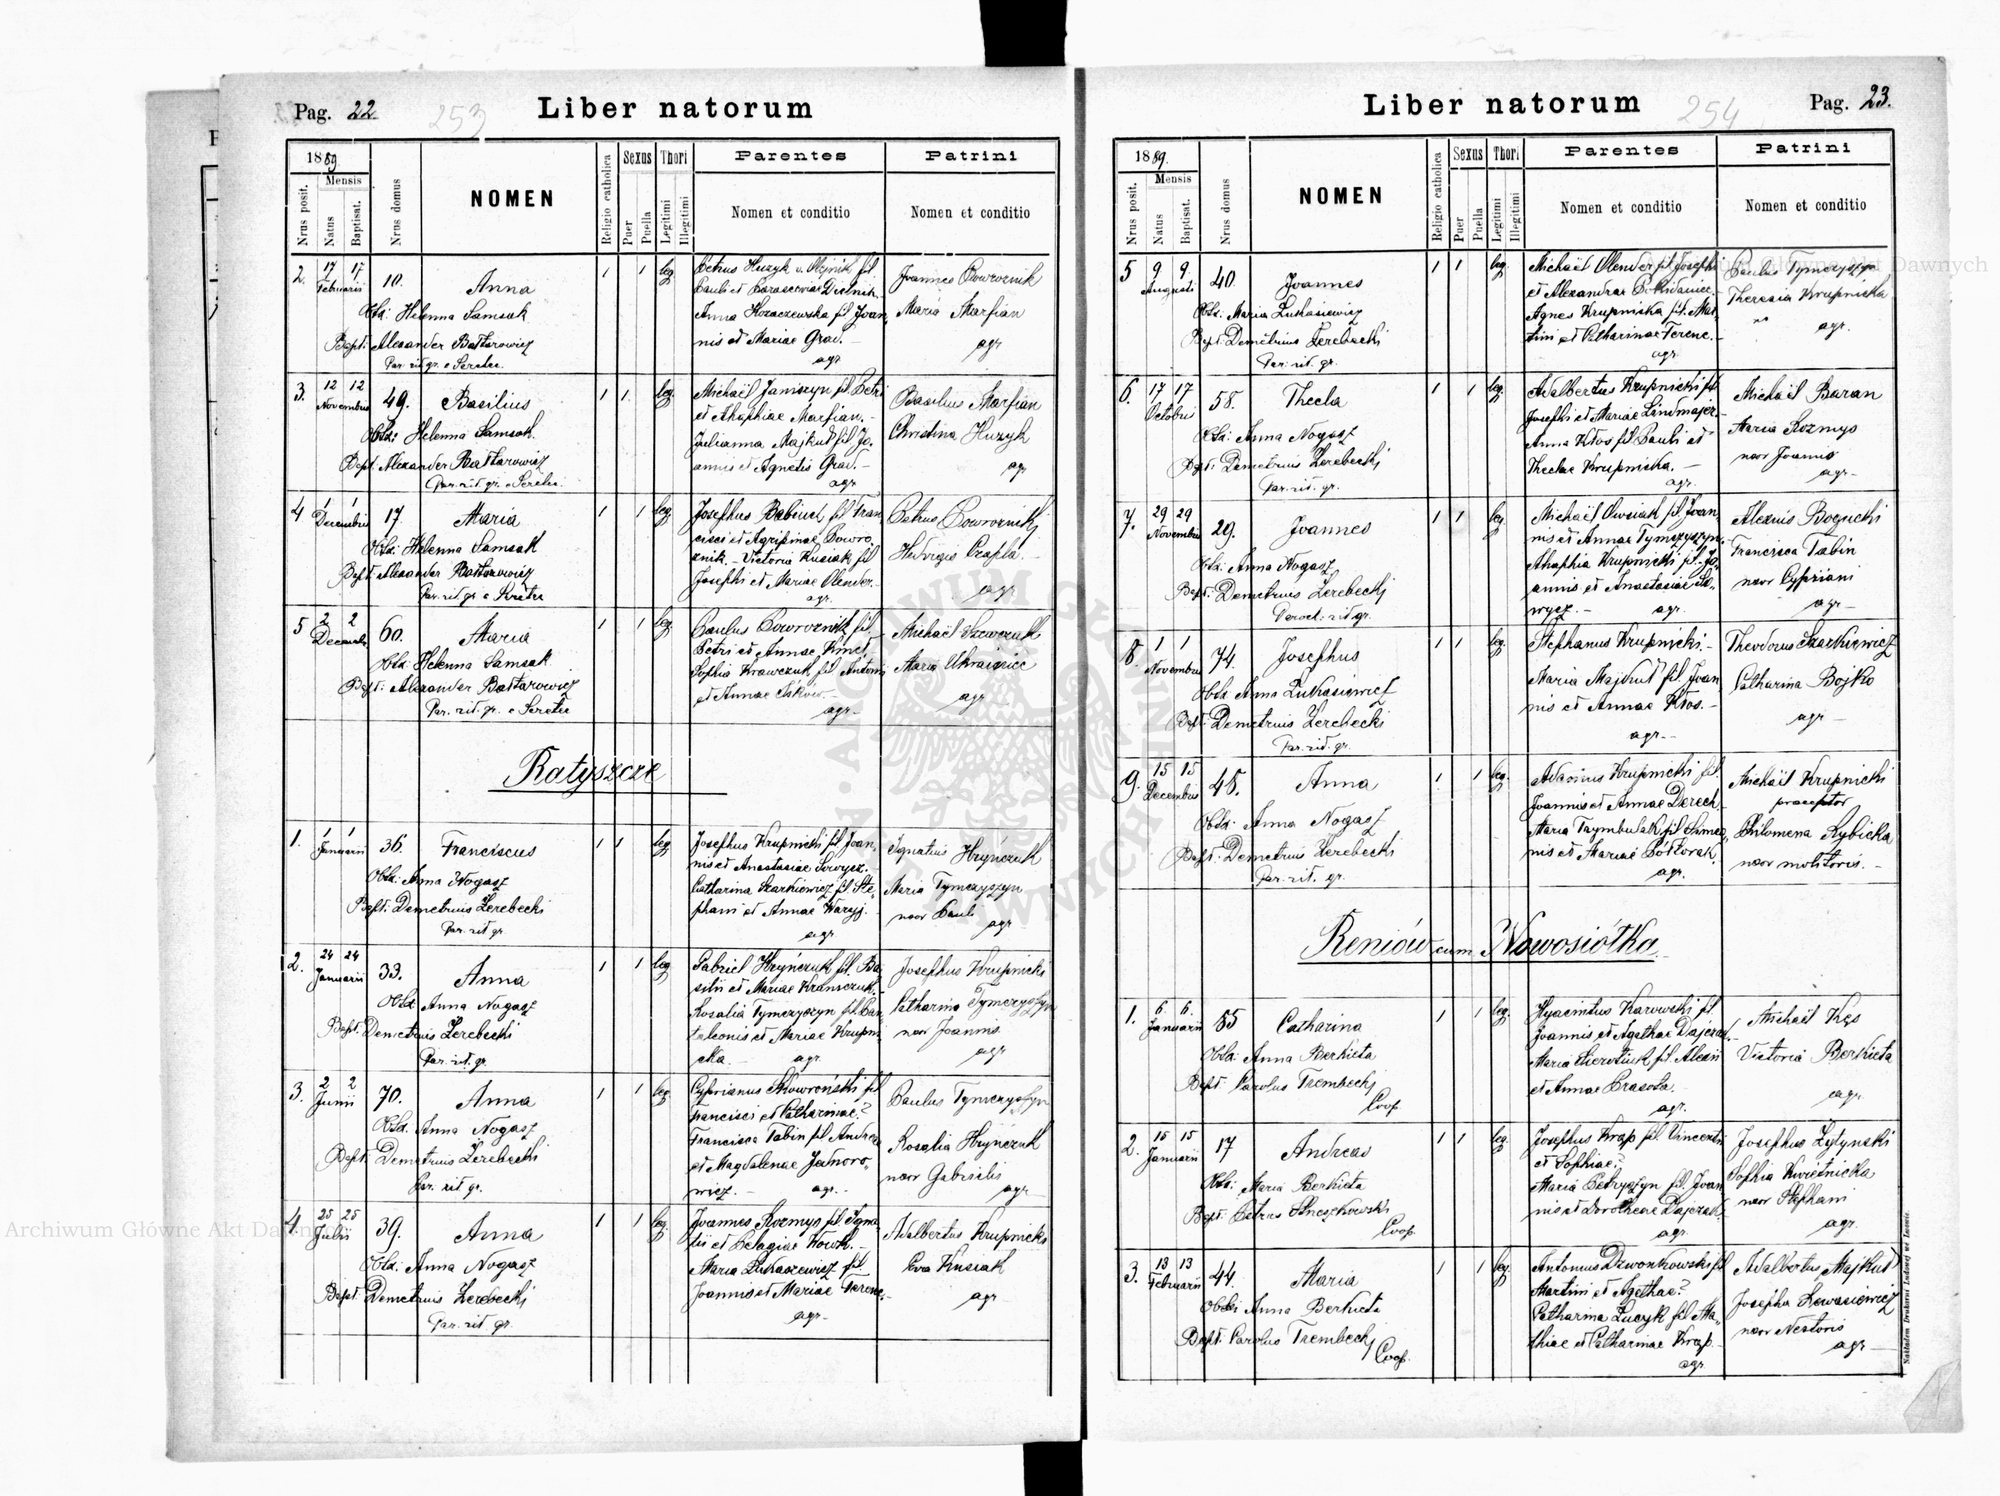 Pag. 22.
253
Liber natorum
1889.
Mensis
Nrus posit.
Natus
Baptisat.
Nrus domus
NOMEN
Religio catholica
Sexus
Puer
Puella
Thori
Legitimi
Illegitimi
Parentes
Nomen et conditio
Patrini
Nomen et conditio
2. 17 17 Februarii 10. Anna 1 1 leg.
Obst: Helenna Samsak
Bapt: Alexander Baltarowicz
Par. rit. gr. e Seretec.
Petrus Huzyk v. Olejnik fil.
Pauli et Parasceviae
Anna Kozaczewska fil. Joan-
nis et Mariae Grad.
agr.
Joannes Poworoznik
Maria Marfian
agr
3. 12 12 Novembris 49. Basilius 1 1 leg.
Obst: Helenna Samsak.
Bapt. Alexander Baltarowicz
Par. rit. gr. e Seretec.
Michaël Janiszyn fil. Petri
et Ahaphiae Marfian.
Julianna Majkut fil. Jo-
annis et Agnetis Grad.
agr
Basilius Marfian
Christina Huzyk
agr
4 1 1 Decembris 17. Maria 1 1 leg.
Obst: Helenna Samsak
Bapt: Alexander Baltarowicz
Par. rit. gr. e Seretec
Josephus Babiuch fil. Fran-
cisci et Agripinae Poworo-
znik. Victoria Kusiak fil
Josephi et Mariae Olender.
agr.
Petrus Poworoznik
Hedvigis Czapla.
agr
5 2 2 Decembris 60. Maria 1 1 leg.
Obst: Helenna Samsak
Bapt: Alexander Baltarowicz
Par. rit. gr. e Seretec
Paulus Poworoznik fil.
Petri et Annae Kinel.
Sophia Krawczuk fil. Antonii
et Annae
agr.
Michaël Szewczuk
Maria Ukrainiec
agr
Ratyszcze
1. 1 1 Januarii 36. Franciscus 1 1 leg
Obst: Anna Nogasz
Bapt: Demetrius Zerebecki
Par. rit. gr.
Josephus Krupnicki fil. Joan-
nis et Anastasiae Sowycz.
Catharina Szarkiewicz fil. Ste-
phani et Annae
agr.
Ignatius Hryńczuk
Maria Tymczyszyn
uxor Pauli
agr
2. 24 24 Januarii 33. Anna 1 1 leg.
Obst Anna Nogasz
Bapt: Demetrius Zerebecki
Par. rit. gr.
Gabriel Hryńczuk fil. Ba-
silii et Mariae Krawczuk.
Rosalia Tymczyszyn fil. Pan-
taleonis et Mariae Krupni-
cka. agr.
Josephus Krupnicki
Catharina Tymczyszyn
uxor Joannis
agr
3. 2 2 Junii 70. Anna 1 1 leg
Obst. Anna Nogasz
Bapt: Demetrius Zerebecki
Par. rit. gr.
Cyprianus Skowroński fil
Francisci et Catharinae?
Francisca Tabin fil Andreae
et Magdalenae Jaworo-
wicz. agr.
Paulus Tymczyszyn
Rosalia Hryńczuk
uxor Gabrielis
agr
4. 25 25 Julii 39. Anna 1 1 leg.
Obst: Anna Nogasz
Bapt: Demetrius Zerebecki
Par. rit. gr.
Joannes Kozmys fil. Igna-
tii et Pelagiae Kowtk.
Maria Lukasiewicz fil.
Joannis et Mariae Terenc.
agr.
Adalbertus Krupnicki
Eva Kusiak
agr
Liber natorum
254
Pag. 23.
1889.
Mensis
Nrus posit.
Natus
Baptisat.
Nrus domus
NOMEN
Religio catholica
Sexus
Puer
Puella
Thori
Legitimi
Illegitimi
Parentes
Nomen et conditio
Patrini
Nomen et conditio
5 9 9. Augusti 40. Joannes 1 1 leg.
Obst. Maria Lukasiewicz
Bapt: Demetrius Zerebecki
Par. rit. gr.
Michaël Olender fil. Josephi
et Alexandrae
Agnes Krupnicka fil. Mar-
tini et Catharinae Terenc.
agr.
Paulus Tymczyszyn
Theresia Krupnicka
agr.
6. 17 17 Octobris 58. Thecla 1 1 leg.
Obst: Anna Nogasz
Bapt: Demetrius Zerebecki
Par. rit. gr.
Adalbertus Krupnicki fil.
Josephi et Mariae Lindmajer.
Anna Kłos fil. Pauli et
Theclae Krupnicka.
agr.
Michaël Baran
Maria Kozmys
uxor Joannis
agr
7. 29 29 Novembris 29. Joannes 1 1 leg.
Obst: Anna Nogasz
Bapt: Demetrius Zerebecki
Paroch. rit. gr.
Michaël Owsiak fil. Joan-
nis et Annae Tymczyszyn.
Ahaphia Krupnicki fil. Jo-
annis et Anastasiae So-
wycz. agr.
Alexius Bogucki
Francisca Tabin
uxor Cypriani
agr
8. 1 1 Novembris 74. Josephus 1 1 leg.
Obst. Anna Lukasiewicz
Bapt: Demetrius Zerebecki
Par. rit. gr.
Stephanus Krupnicki.
Maria Majkut fil Joan-
nis et Annae Kłos.
agr.
Theodorus Szarkiewicz
Catharina Bojko
agr
9. 15 15 Decembris 48. Anna 1 1 leg.
Obst: Anna Nogasz
Bapt: Demetrius Zerebecki
Par. rit. gr.
Krupnicki fil.
Joannis et Annae Derech.
Maria Trymbulak fil Simeo-
nis et Mariae Półtorak.
agr.
Michaël Krupnicki
praeceptor
Philomena Rybicka
uxor molitoris.
Reniów cum Nowosiółka.
1. 6. 6. Januarii 85 Catharina 1 1 leg.
Obst: Anna Berkieta
Bapt: Carolus Trembecki
Coop.
Hyacintus Karowski fil.
Joannis et Agathae Dajczak.
Maria Sierotiuk fil Alexii
et Annae Prasoła.
agr.
Michaël Kęs
Victoria Berkieta
agr.
2. 15 15 Januarii 17 Andreas 1 1 leg.
Obst: Maria Berkieta
Bapt. Petrus
Coop.
Josephus Krąp fil Vincentii
et Sophiae?
Maria Petryszyn fil. Joan-
nis et Dorotheae Dajczak.
agr.
Josephus Zytynski
Sophia Kwietnicka
uxor Stephani
agr.
3. 13 13 Februarii 44. Maria 1 1 leg.
Obst: Anna Berkieta
Bapt: Carolus Trembecki
Coop.
Antonius Dzwonkowski fil
Martini et Agathae?
Catharina Łuczyk fil Ma-
thiae et Catharinae Krąp.
agr
Adalbertus Majkut
Josepha Lewasiewicz
uxor Nestoris
agr
Nakładem Drukarni Ludowej we Lwowie.
Archiwum Główne Akt Dawnych
Archiwum Główne Akt Dawnych
ARCHIWUM GŁÓWNE AKT DAWNYCH